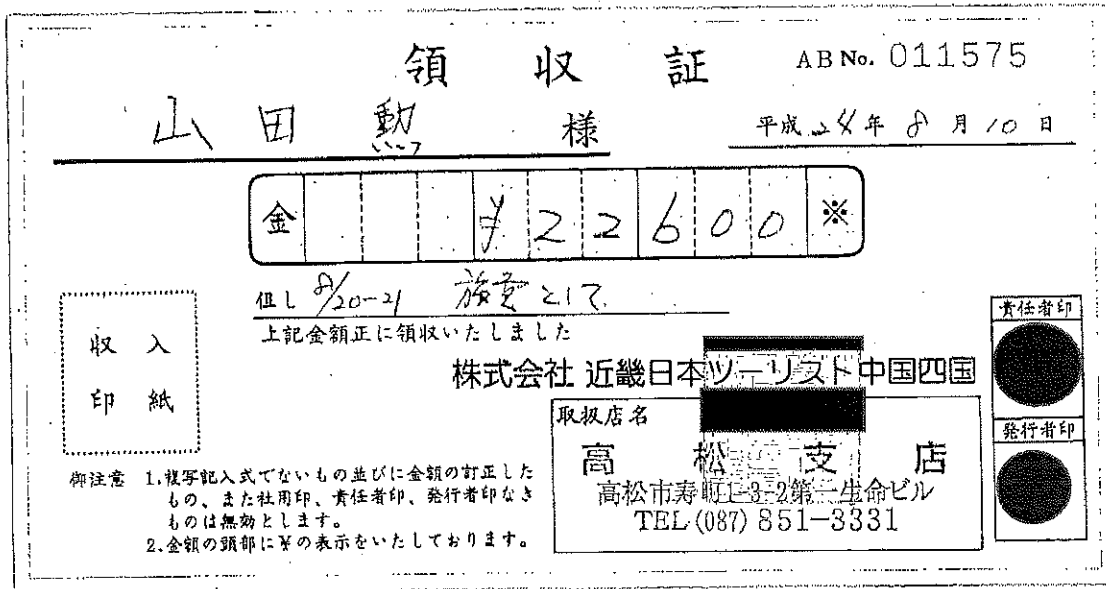 領収証
AB No. 011575
山田 勲 様
平成 24年 8月 10日
金 ¥22600※
但し 8/20-21 旅費として
上記金額正に領収いたしました
収入
印紙
株式会社 近畿日本ツーリスト中国四国
責任者印
取扱店名
高松支店
高松市寿町1-3-2第一生命ビル
TEL(087)851-3331
発行者印
御注意 1.複写記入式でないもの並びに金額の訂正した
もの、また社用印、責任者印、発行者印なき
ものは無効とします。
2.金額の頭部に¥の表示をいたしております。